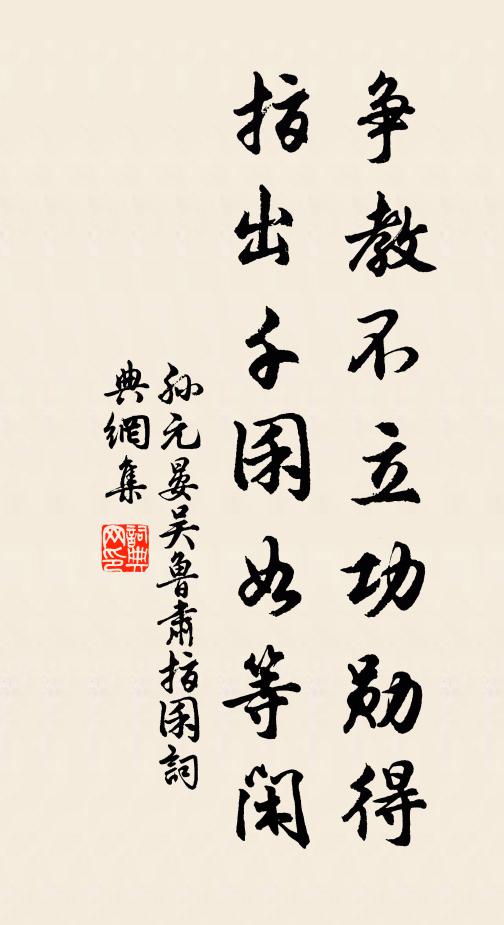 争教不立功勋得
指出千囷如等闲
孙元晏吴鲁肃指囷词
典網集
詞典
网印